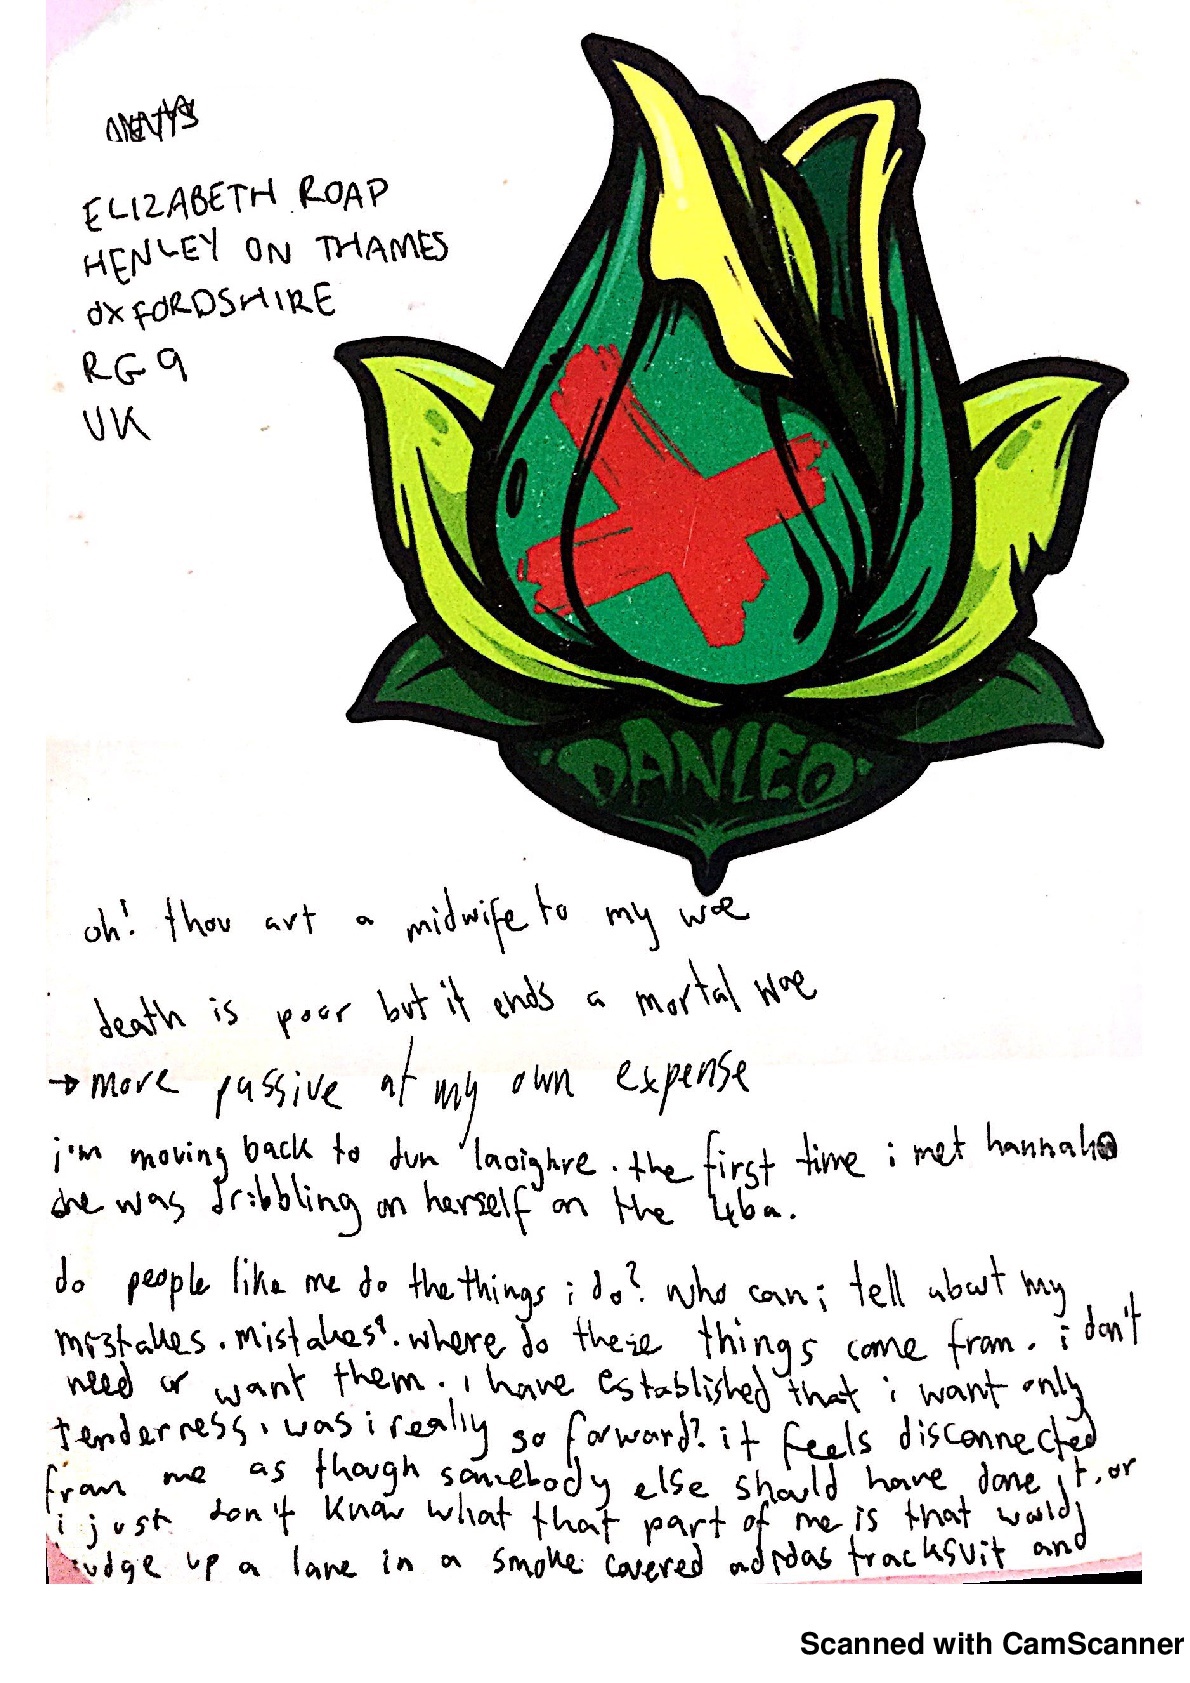 ELIZABETH ROAP
HENLEY ON THAMES
OXFORDSHIRE
RG9
UK
DANLEO
oh! thou art a midwife to my woe
death is poor but it ends a mortal woe
→ more passive at my own expense
i'm moving back to dun laoighre. the first time i met hannah
she was dribbling on herself on the 46a.
do people like me do the things i do? who can i tell about my
mistakes. mistakes?. where do these things come from. i don't
need or want them. i have established that i want only
tenderness. was i really so forward? it feels disconnected
from me as though somebody else should have done it. or
i just don't know what that part of me is that would
up a lane in a smoke covered adidas tracksuit and
Scanned with CamScanner